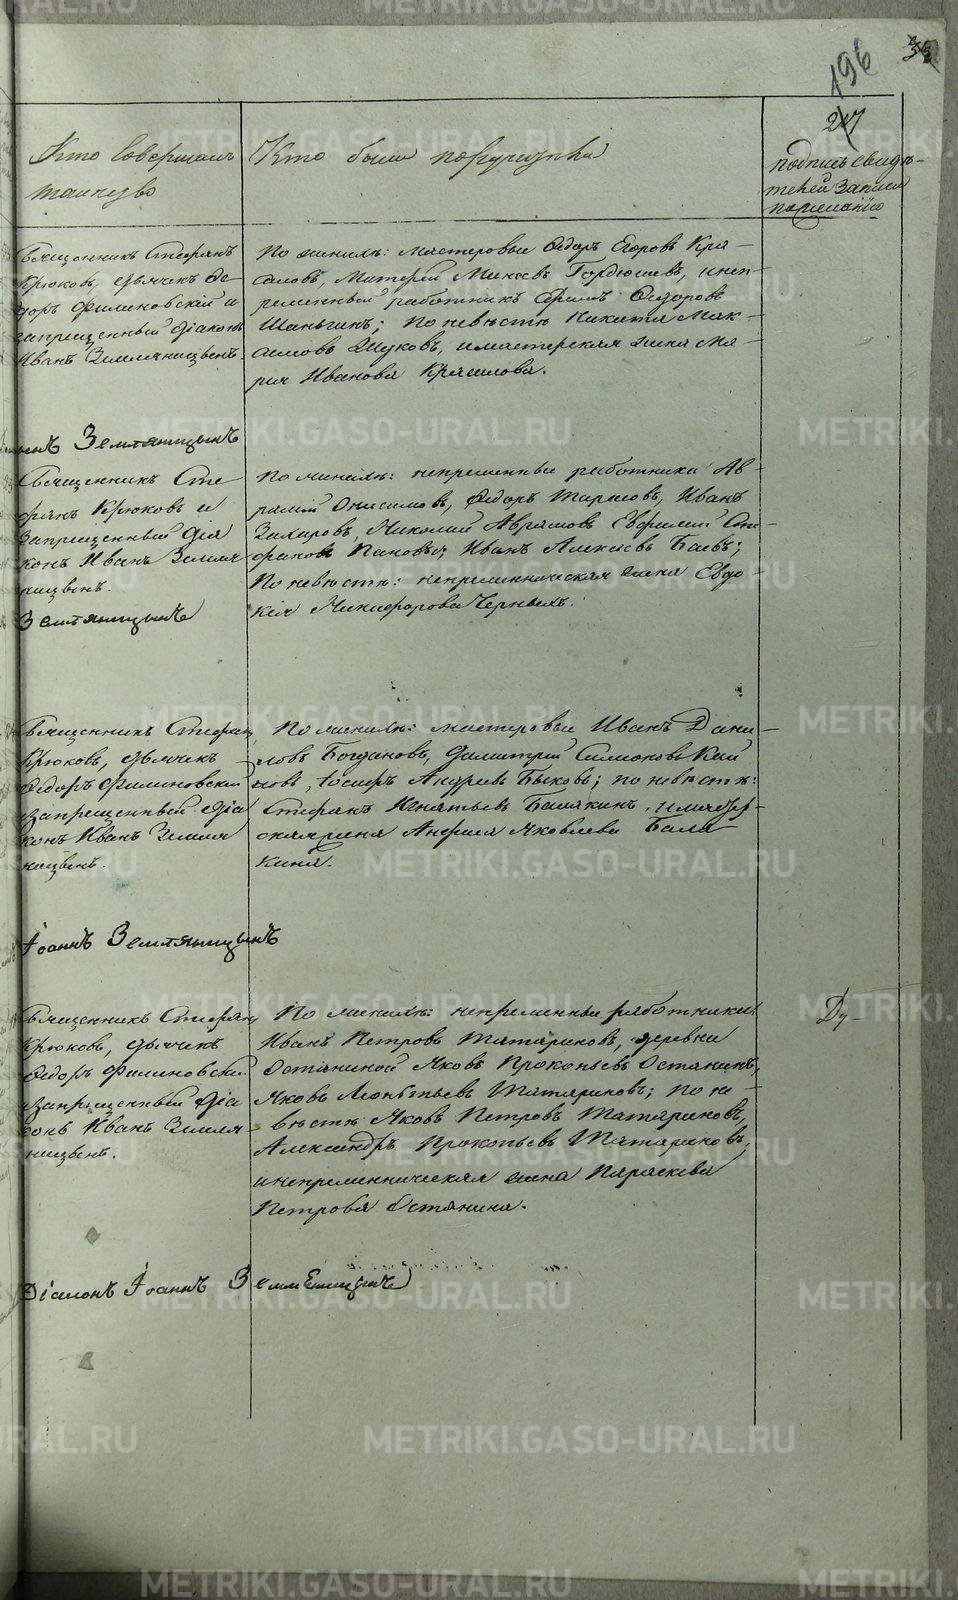 196
33
247
Кто совершалъ
таинство
Кто были поручители
подпись свидѣ-
телей записи
по желанію
Священникъ Стефанъ
Крюковъ, дьячекъ Ѳе-
доръ Филиновскій и
запрещенный діаконъ
Иванъ Земляницынъ.
По женихѣ: мастеровые Ѳедоръ Егоровъ Кра-
силовъ, Матѳей Минеевъ Гордюшевъ, и неп-
ременный работникъ Ѳедоровъ
Шаньгинъ; по невѣстѣ Никита Мак-
симовъ Жуковъ, и мастерская жена Ма-
рия Иванова Красилова.
Земляницынъ
Священникъ Сте
фанъ Крюковъ и
запрещенный діа
конъ Иванъ Земля
ницынъ.
Земляницынъ
По женихѣ: непременные работники Ав-
рамій Онисимовъ, Ѳедоръ Тарасовъ, Иванъ
Захаровъ, Николай Аврамовъ Евфимій Сте-
фановъ Пановы, Иванъ Алексѣевъ Баевъ;
По невѣстѣ: непременническая жена Евдо-
кія Никифорова Черныхъ.
Священникъ Стефанъ
Крюковъ, дьячекъ
Ѳедоръ Филиновскій
и запрещенный діа
конъ Иванъ Земля
ницынъ.
По женихѣ: мастеровые Иванъ Дани-
ловъ Богдановъ, Димитрій Симоновъ Кай
, Іосифъ Андреевъ Быковъ; по невѣстѣ:
Стефанъ Игнатьевъ Балакинъ, и мастер-
ская жена Анфиса Яковлева Бала
кина.
Іоаннъ Земляницынъ
Священникъ Стефанъ
Крюковъ, дьячекъ
Ѳедоръ Филиновскій
и запрещенный діа
конъ Иванъ Земля
ницынъ.
По женихѣ: непременные работники:
Иванъ Петровъ Татариновъ, деревни
Останиной Яковъ Прокопьевъ Останинъ,
Яковъ Леонтьевъ Татариновъ; по не
вѣстѣ Яковъ Петровъ Татариновъ,
Александръ Прокопьевъ Татариновъ,
и непременническая жена Параскева
Петрова Останина.
Ду-
Діаконъ Іоаннъ Земляницынъ
METRIKI.GASO-URAL.RU